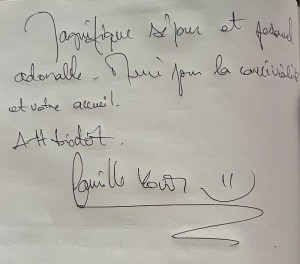 Magnifique séjour et personnel
adorable. Merci pour la convivialité
et votre accueil.
A bientôt.
Famille